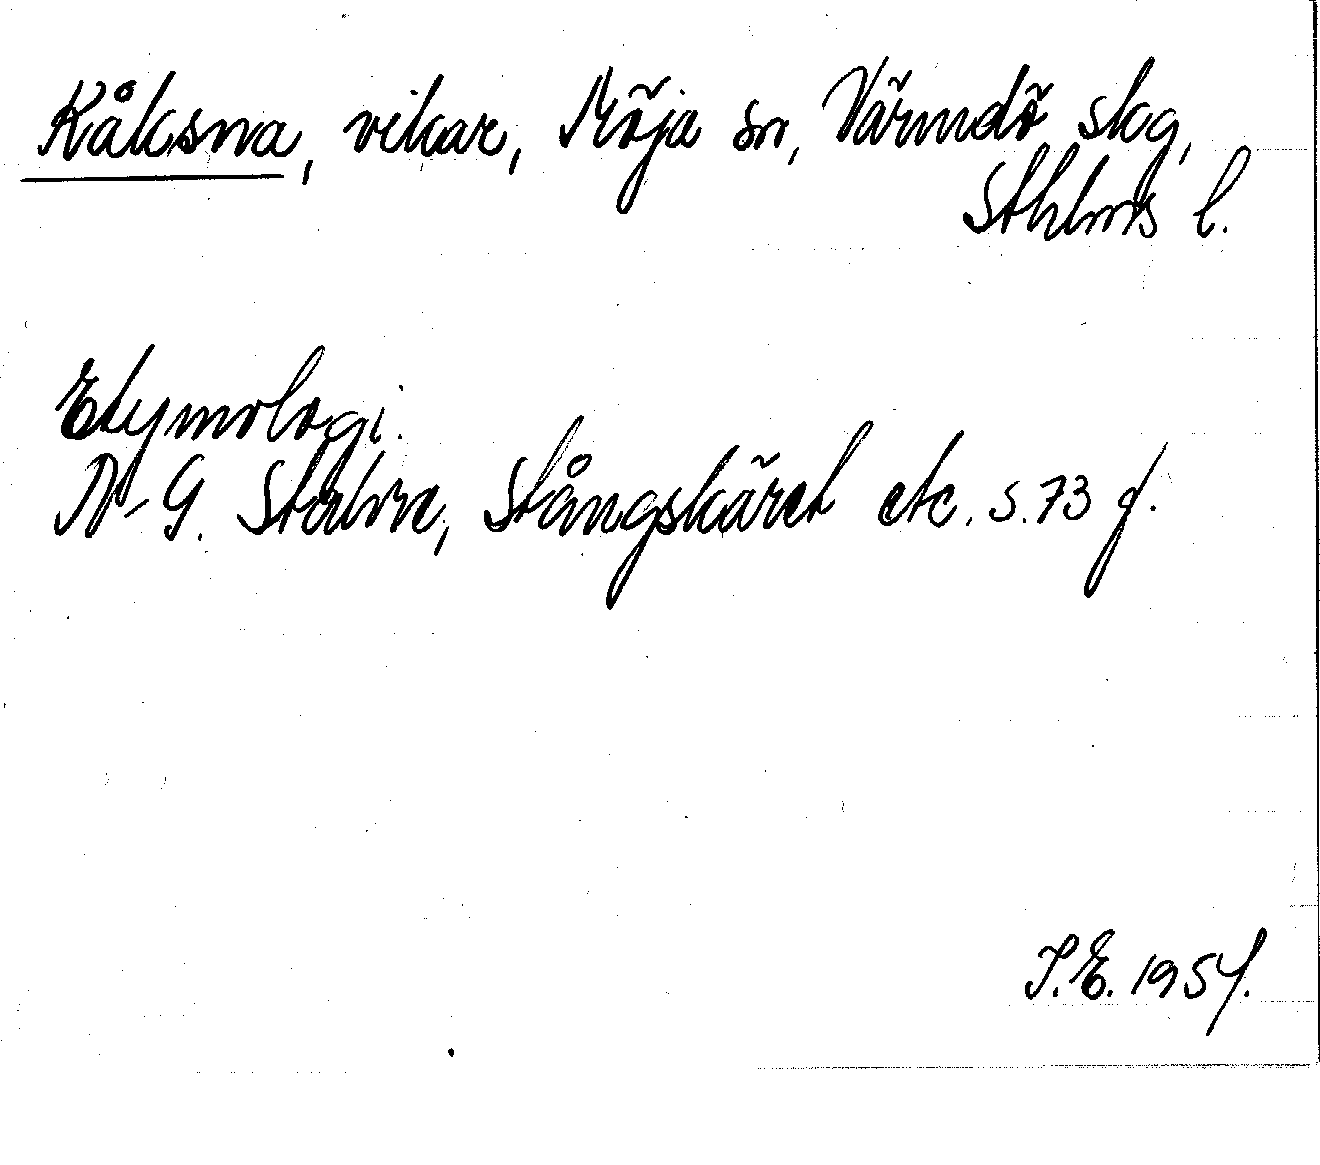 Kåksna, vikar, Möja sn, Värmdö skg,
Sthlms l.
Etymologi.
N-G. Stahre, Stångskäret etc. s. 73 f.
S.E. 1954.